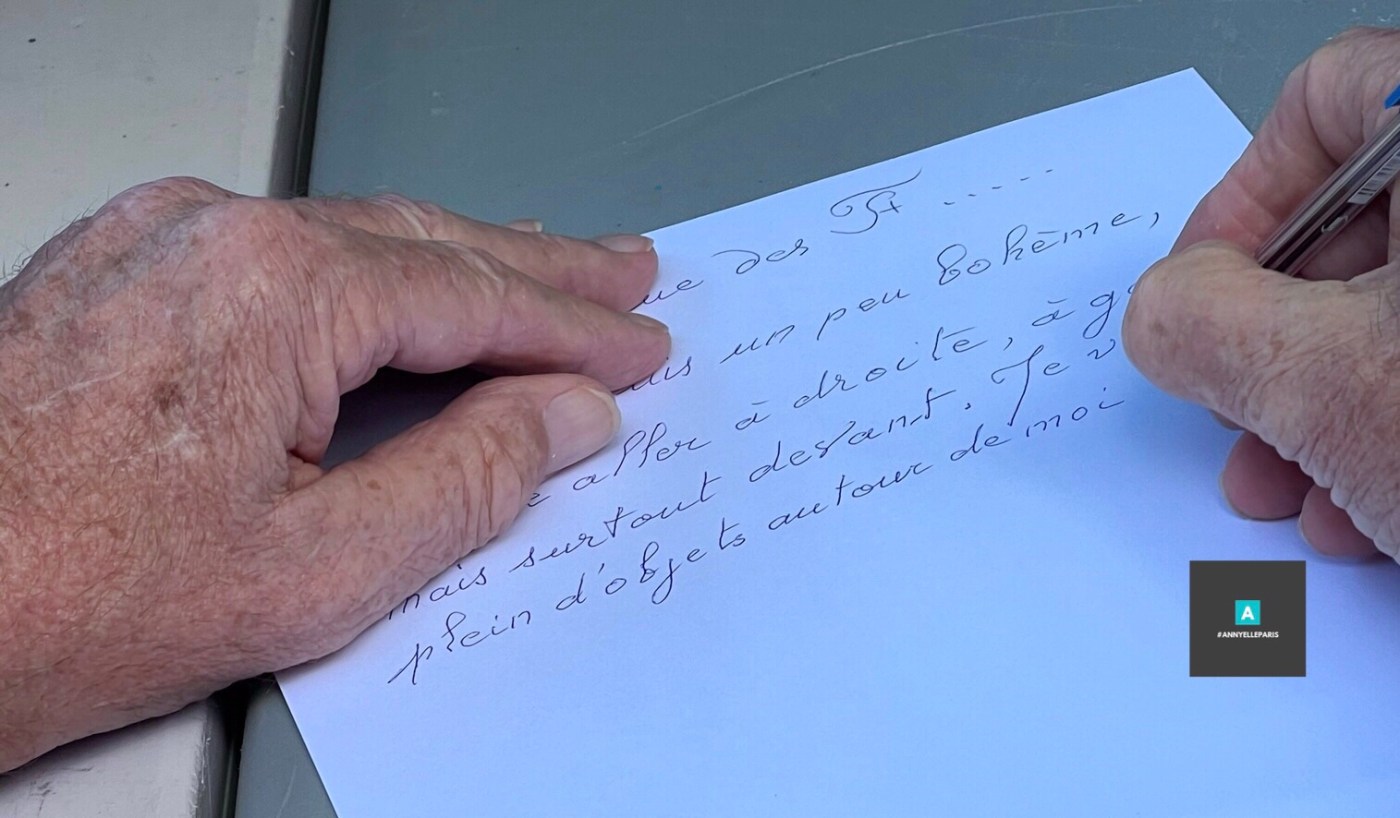 ue des Ft .....
uis un peu bohème,
e aller à droite, à g
mais surtout devant. Je v
plein d'objets autour de moi
A
#ANNYELLEPARIS